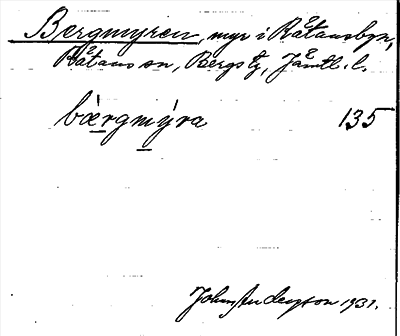 Bergmyren, myr i Råtansbyn,
Råtans sn, Bergs tg, Jämtl. l.
bærgmýra 135
John Andersson 1931.